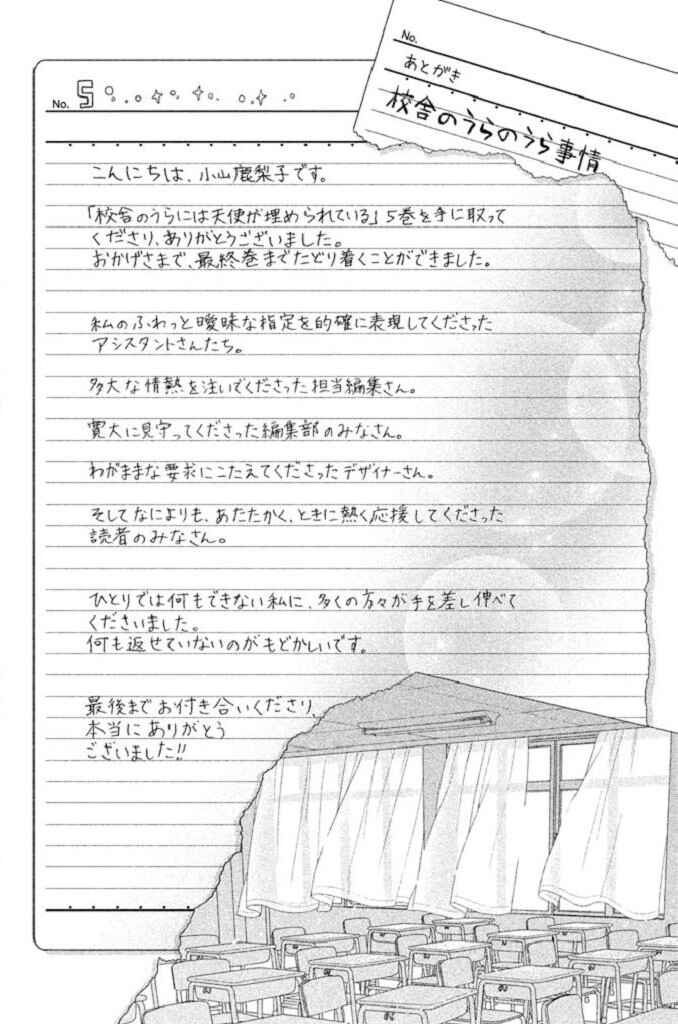 No.
あとがき
校舎のうらのうら事情
No. 5
こんにちは、小山鹿梨子です。
「校舎のうらには天使が埋められている」5巻を手に取って
くださり、ありがとうございました。
おかげさまで、最終巻までたどり着くことができました。
私のふわっと曖昧な指定を的確に表現してくださった
アシスタントさんたち。
多大な情熱を注いでくださった担当編集さん。
寛大に見守ってくださった編集部のみなさん。
わがままな要求にこたえてくださったデザイナーさん。
そしてなによりも、あたたかく、ときに熱く応援してくださった
読者のみなさん。
ひとりでは何もできない私に、多くの方々が手を差し伸べて
くださいました。
何も返せていないのがもどかしいです。
最後までお付き合いくださり、
本当にありがとう
ございました!!